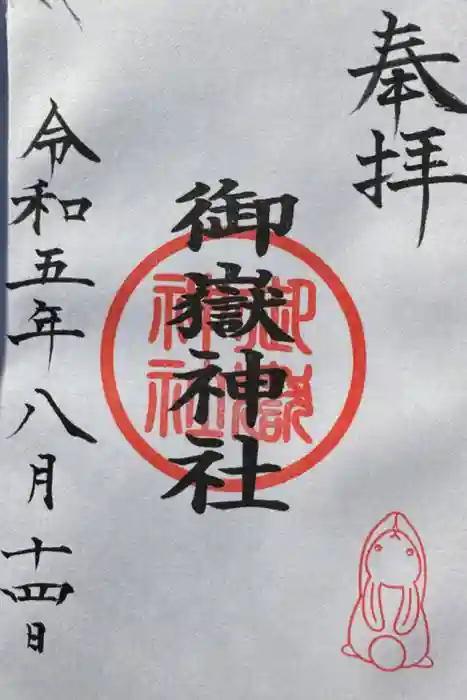 奉拝
御嶽神社
御嶽
神社
令和五年八月十四日